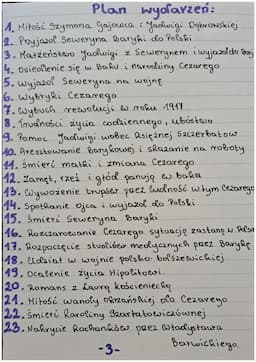 Plan wydarzeń:
1. Miłość Szymona Gajowca i Jadwigi Dąbrowskiej
2. Przyjazd Seweryna Baryki do Polski
3. Małżeństwo Jadwigi z Sewerynem i wyjazd do
4. Osiedlenie się w Baku i narodziny Cezarego
5. Wyjazd Seweryna na wojnę
6. Wybryki Cezarego
7. Wybuch rewolucji w roku 1917
8. Trudności życia codziennego, ubóstwo
9. Pomoc Jadwigi wobec księżnej Szczerbatow
10. Aresztowanie Barykowej i skazanie na roboty
11. Śmierć matki i zmiana Cezarego
12. Zamęt, rzeź i głód panują w baku
13. Wywożenie trupów przez ludność w tym Cezarego
14. Spotkanie ojca i wyjazd do Polski
15. Śmierć Seweryna Baryki
16. Rozczarowanie Cezarego sytuacją zastaną w Polsce
17. Rozpoczęcie studiów medycznych przez Barykę
18. Udział w wojnie polsko-bolszewickiej
19. Ocalenie życia Hipolitowi.
20. Romans z Laurą Kościeniecką
21. Miłość Wandy Okrzańskiej do Cezarego
22. Śmierć Karoliny Szarłatowiczównej
23. Nakrycie kochanków przez Władysława
Barwickiego.
-3-